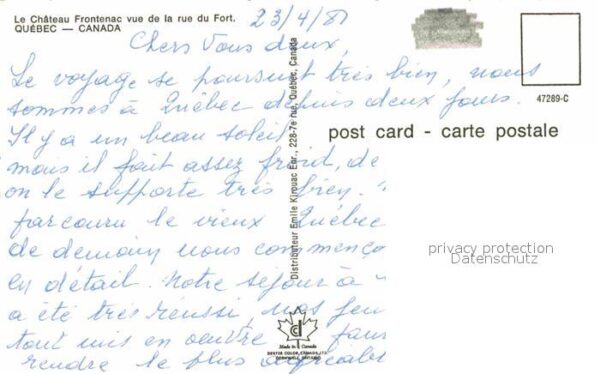 Le Château Frontenac vue de la rue du Fort.
QUÉBEC — CANADA
23/4/81
Chers Vous deux,
Le voyage se poursuit très bien, nous
sommes à Québec depuis deux jours.
Il y a un beau soleil
mais il fait assez froid, de
on le supporte très bien.
parcouru le vieux Québec
de demain nous commenço
en détail. Notre séjour à
a été très réussi, nos
tout mis en oeuvre
rendre le plus agréabl
Distributeur Emile Kirouac Enr., 228-7e rue, Québec, Canada
47289-C
post card - carte postale
privacy protection
Datenschutz
Made in Canada
DEXTER COLOR CANADA LTD.
CORNWALL, ONTARIO